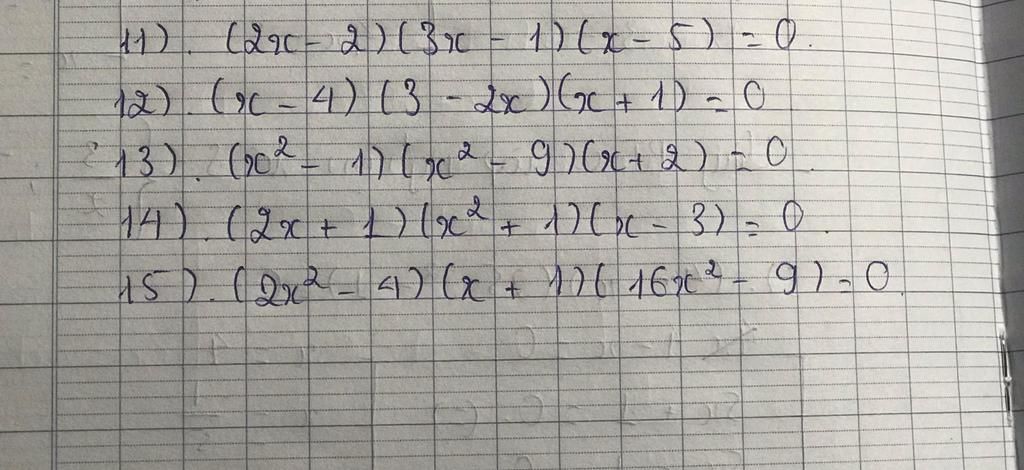 11). (2x - 2)(3x - 1)(x - 5) = 0.
12). (x - 4)(3 - 2x)(x + 1) = 0
13). (x² - 1)(x² - 9)(x + 2) = 0
14). (2x + 1)(x² + 1)(x - 3) = 0.
15). (2x² - 4)(x + 1)(16x² - 9) = 0.